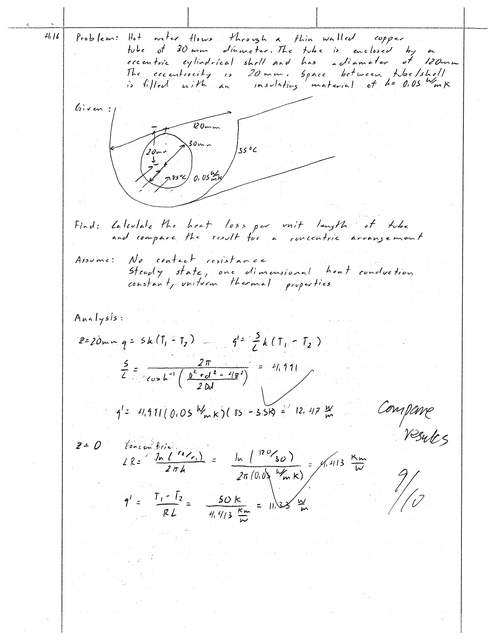 4.16 Problem: Hot water flows through a thin walled copper
tube of 30mm diameter. The tube is enclosed by a
eccentric cylindrical shell and has a diameter of 120mm
The eccentrocity is 20mm. Space between tube/shell
is filled with an insulating material of k= 0.05 W/mK
Given:
120mm
30mm
20mm
35°C
85°C 0.05 W/mK
Find: Calculate the heat loss per unit length of tube
and compare the result for a concentric arrangement
Assume: No contact resistance
Steady state, one dimensional heat conduction
constant, uniform thermal properties
Analysis:
z=20mm q = Sk(T1 - T2) q' = S/L k(T1 - T2)
S/L = 2π / cosh⁻¹((D² + d² - 4z²)/2Dd) = 4.991
q' = 4.991(0.05 W/mK)(85 - 35K) = 12.47 W/m
Compare
results
z=0 Concentric
LR = ln(r2/r1) / 2πk = ln(120/30) / 2π(0.05 W/mK) = 4.413 Km/W
9/10
q' = T1 - T2 / RL = 50K / 4.413 Km/W = 11.33 W/m